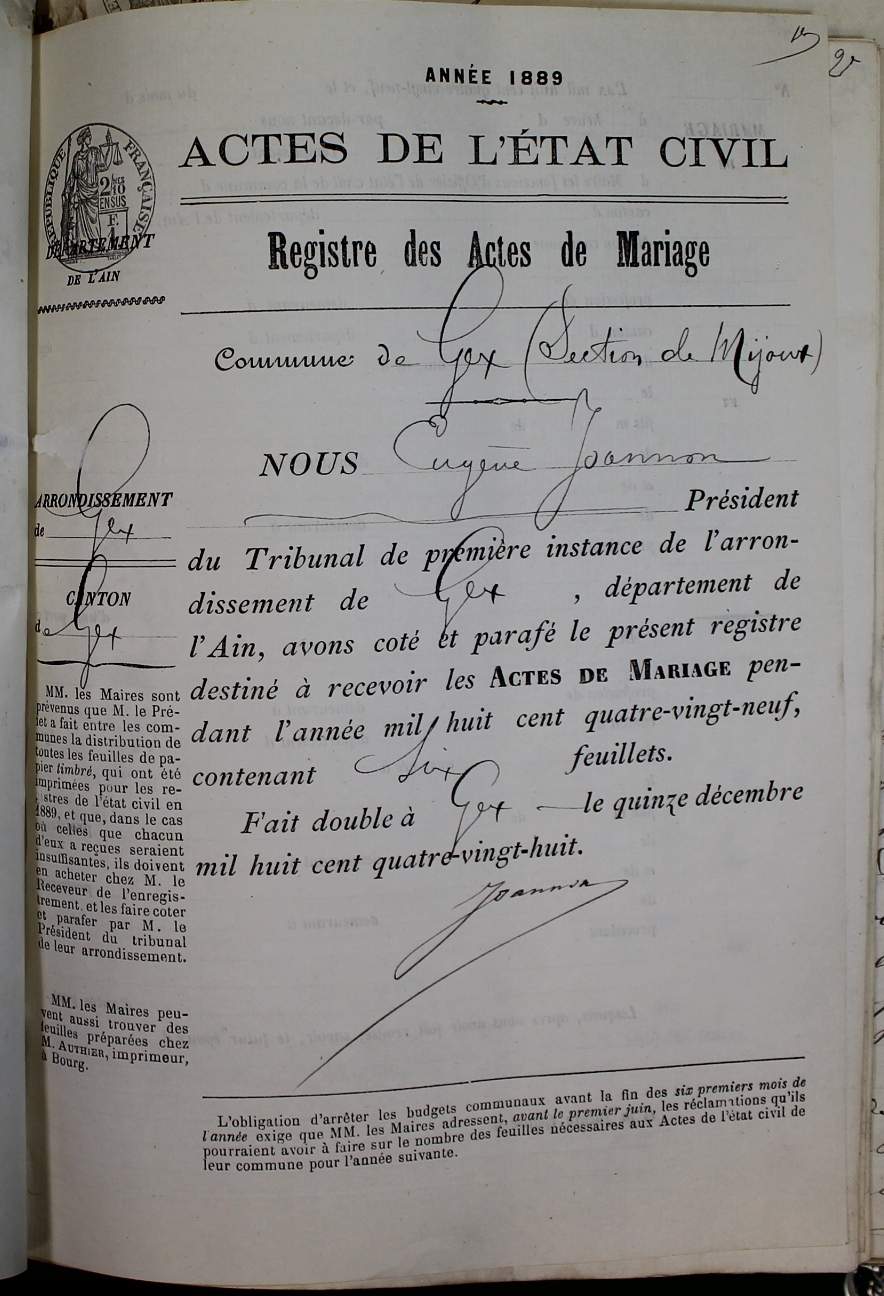 ANNÉE 1889
ACTES DE L'ÉTAT CIVIL
RÉPUBLIQUE FRANÇAISE
DÉPARTEMENT
DE L'AIN
Registre des Actes de Mariage
Commune de Gex (Section de Mijoux)
NOUS Eugène Joannon
Président
du Tribunal de première instance de l'arron-
dissement de Gex, département de
l'Ain, avons coté et parafé le présent registre
destiné à recevoir les ACTES DE MARIAGE pen-
dant l'année mil huit cent quatre-vingt-neuf,
contenant Six feuillets.
Fait double à Gex le quinze décembre
mil huit cent quatre-vingt-huit.
Joannon
ARRONDISSEMENT
de Gex
CANTON
de Gex
MM. les Maires sont
prévenus que M. le Pré-
fet a fait entre les com-
munes la distribution de
toutes les feuilles de pa-
pier timbré, qui ont été
imprimées pour les re-
gistres de l'état civil en
1889, et que, dans le cas
où celles que chacun
d'eux a reçues seraient
insuffisantes, ils doivent
en acheter chez M. le
Receveur de l'enregis-
trement, et les faire coter
et parafer par M. le
Président du tribunal
de leur arrondissement.
MM. les Maires peu-
vent aussi trouver des
feuilles préparées chez
M. AUTHIER, imprimeur,
à Bourg.
L'obligation d'arrêter les budgets communaux avant la fin des six premiers mois de
l'année exige que MM. les Maires adressent, avant le premier juin, les réclamations qu'ils
pourraient avoir à faire sur le nombre des feuilles nécessaires aux Actes de l'état civil de
leur commune pour l'année suivante.